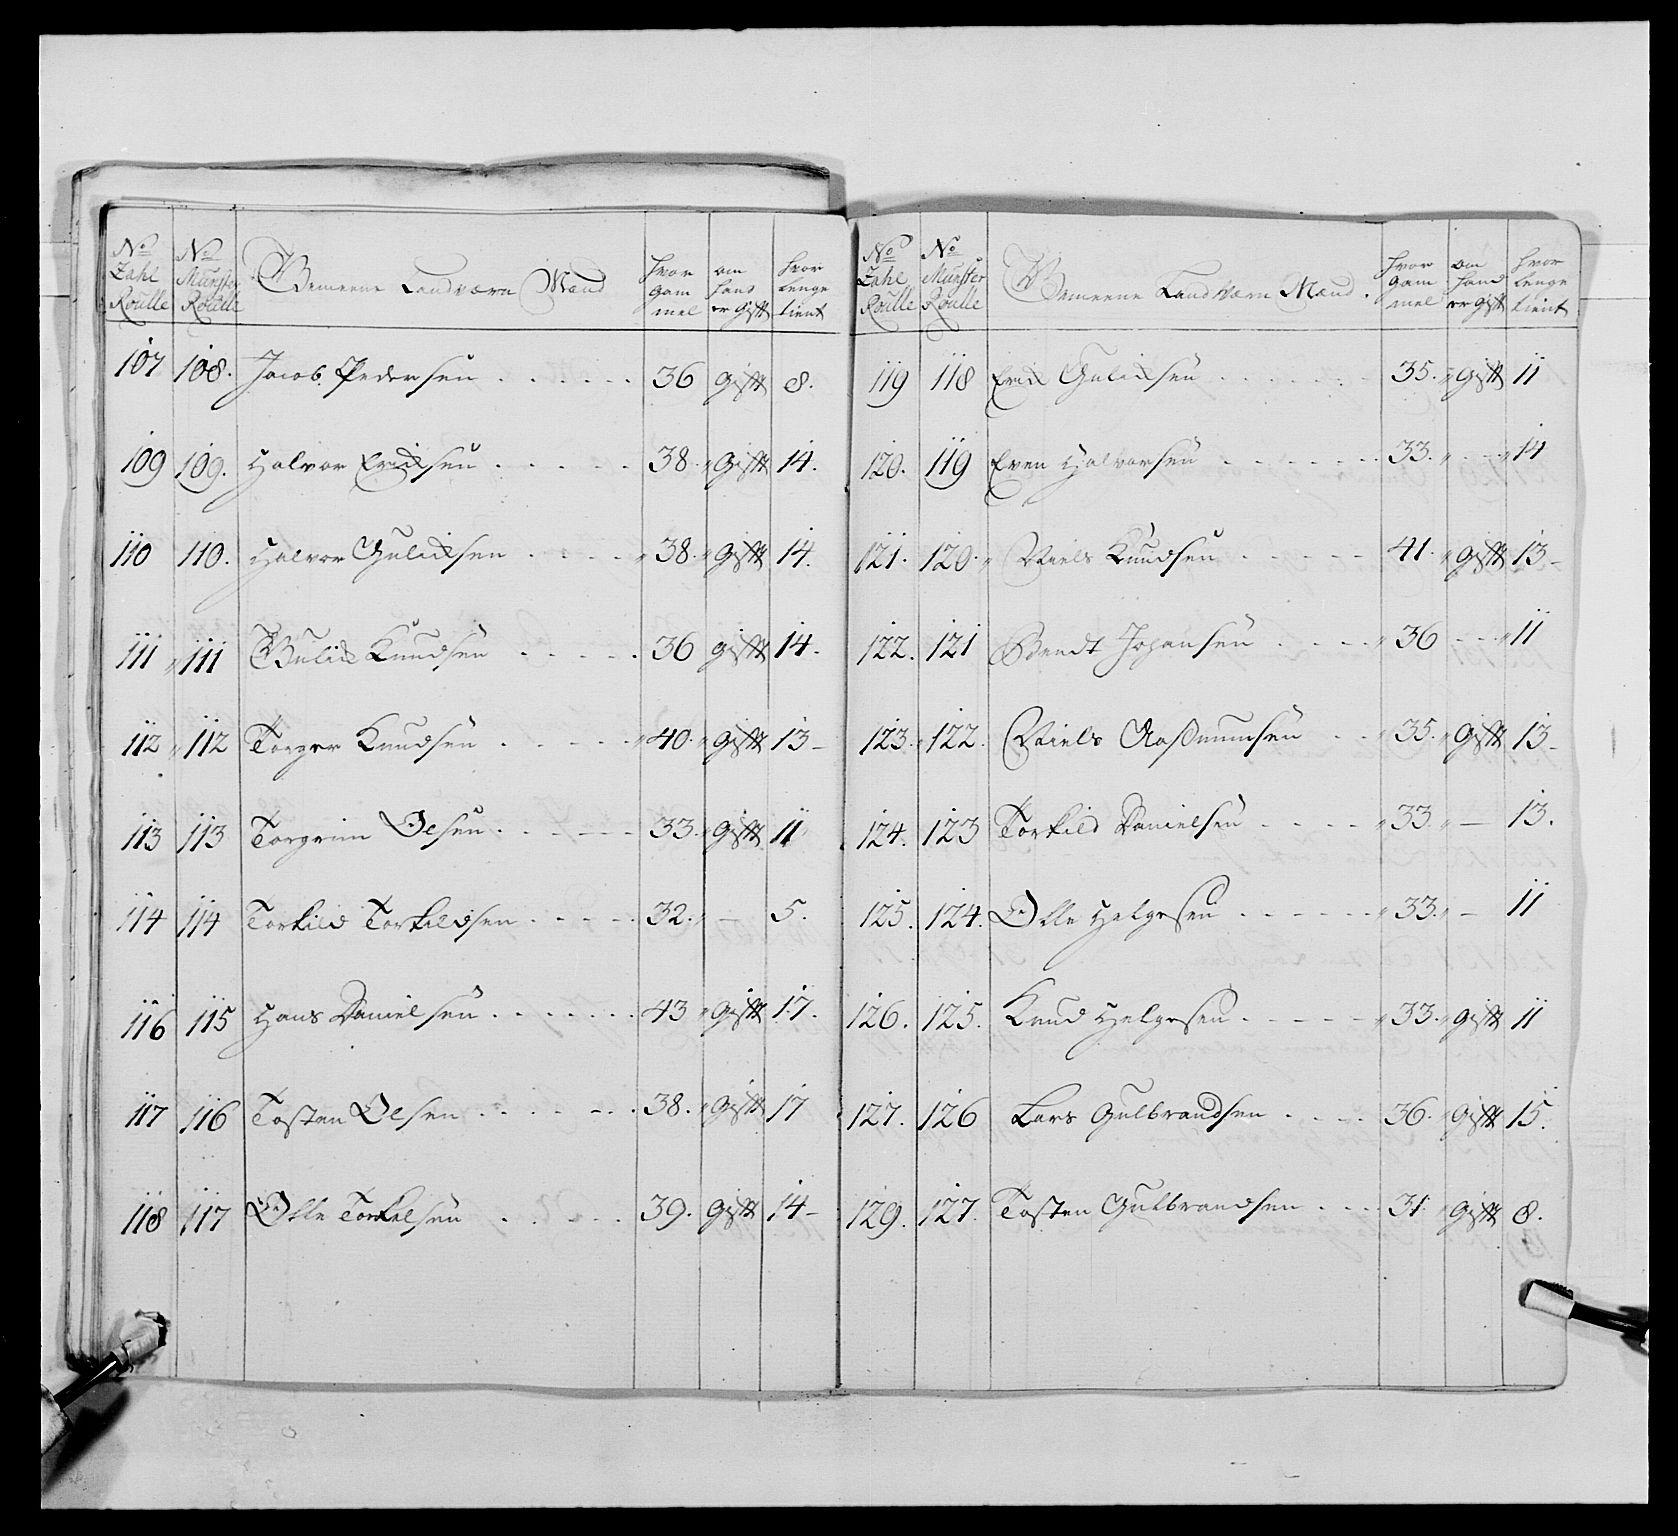 No Zahl Roulle | No Munster Roulle | Gemeene Landværn Mænd | hvor gam mel | om hand er gift | hvor lenge tient
107 108. Jacob Pedersen . . . . . . 36 gift 8.
109 109. Halvor Erichsen . . . . . 38. gift 14.
110 110. Halvor Gulichsen . . . . 38. gift 14.
111 111 Gulich Knudsen . . . . . 36 gift 14.
112 112 Torger Knudsen . . . . . 40. gift 13
113 113 Torgrim Olsen . . . . . . 33. gift 11
114 114 Torkild Torkildsen . . . . . 32. — 5.
116 115 Hans Danielsen . . . . . . . 43 gift 17.
117 116 Tosten Olsen . . . . . . . 38. gift 17
118 117 Olle Torkelsen . . . . . 39. gift 14
No Zahl Roulle | No Munster Roulle | Gemeene Landværn Mænd. | hvor gam mel | om hand er gift | hvor lenge tient
119 118 Erich Gulichsen . . . . . . 35. gift 11
120. 119 Even Halvorsen . . . . . . . 33. - - 14
121. 120. Niels Knudsen . . . . . 41. gift 13
122. 121 Bendt Johansen . . . . 36 - - 11
123. 122. Niels Aasmunsen . . 35. gift 13
124. 123 Torkild Danielsen . . . . 33 — 13.
125. 124. Olle Helgesen . . . . . . 33. — 11
126. 125. Knud Helgesen . . . . . 33. gift 11
127. 126 Lars Gulbrandsen . . . . 36. gift 15.
129. 127. Tosten Gulbrandsen . . . 31. gift 8.